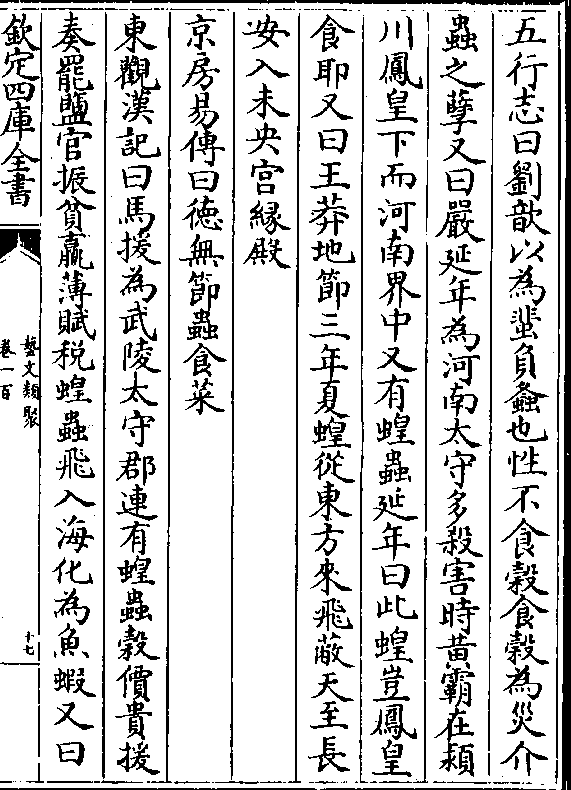 五行志曰劉歆以為蜚負蠜也性不食榖食榖為災介
蟲之孽又曰嚴延年為河南太守多殺害時黄霸在潁
川鳳皇下而河南界中又有蝗蟲延年曰此蝗豈鳳皇
食耶又曰王莽地節三年夏蝗從東方來飛蔽天至長
安入未央宫緣殿
京房易傳曰徳無節蟲食菜
東觀漢記曰馬援為武陵太守郡連有蝗蟲榖價貴援
奏罷鹽官振貧羸薄賦税蝗蟲飛入海化為魚蝦又曰
欽定四庫全書
藝文類聚
卷一百
十七